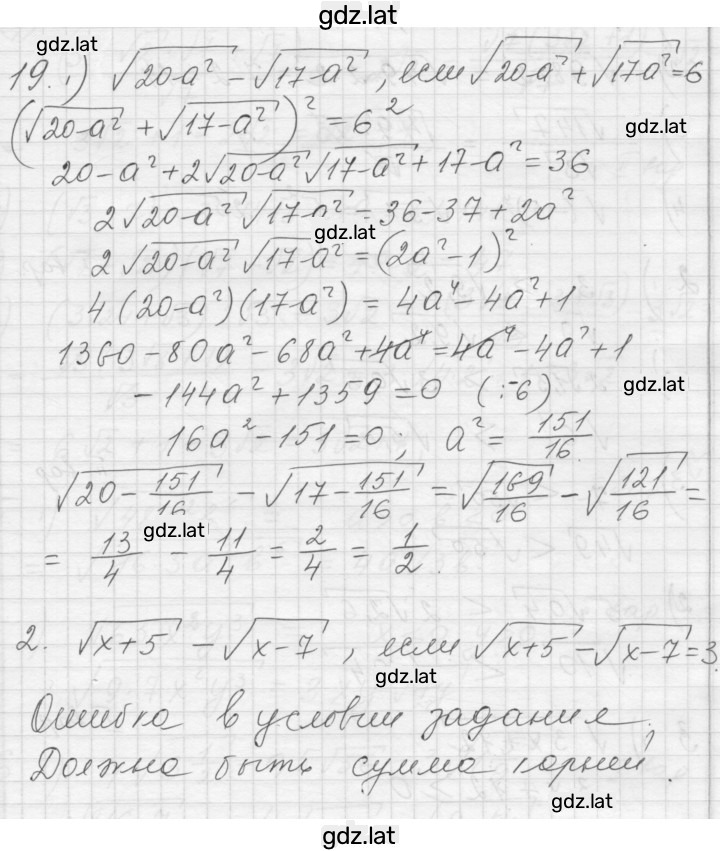 gdz.lat
gdz.lat
19. 1) √(20-a²) - √(17-a²), если √(20-a²) + √(17-a²) = 6
(√(20-a²) + √(17-a²))² = 6²
gdz.lat
20 - a² + 2√(20-a²)√(17-a²) + 17 - a² = 36
2√(20-a²)√(17-a²) = 36 - 37 + 2a²
gdz.lat
2√(20-a²)√(17-a²) = (2a² - 1)²
4(20-a²)(17-a²) = 4a⁴ - 4a² + 1
1360 - 80a² - 68a² + 4a⁴ = 4a⁴ - 4a² + 1
-144a² + 1359 = 0 (:-6)
gdz.lat
16a² - 151 = 0; a² = 151/16
√(20 - 151/16) - √(17 - 151/16) = √(169/16) - √(121/16) =
gdz.lat
= 13/4 - 11/4 = 2/4 = 1/2.
2. √(x+5) - √(x-7), если √(x+5) - √(x-7) = 3.
gdz.lat
Ошибка в условии задания,
Должна быть сумма корней.
gdz.lat
gdz.lat